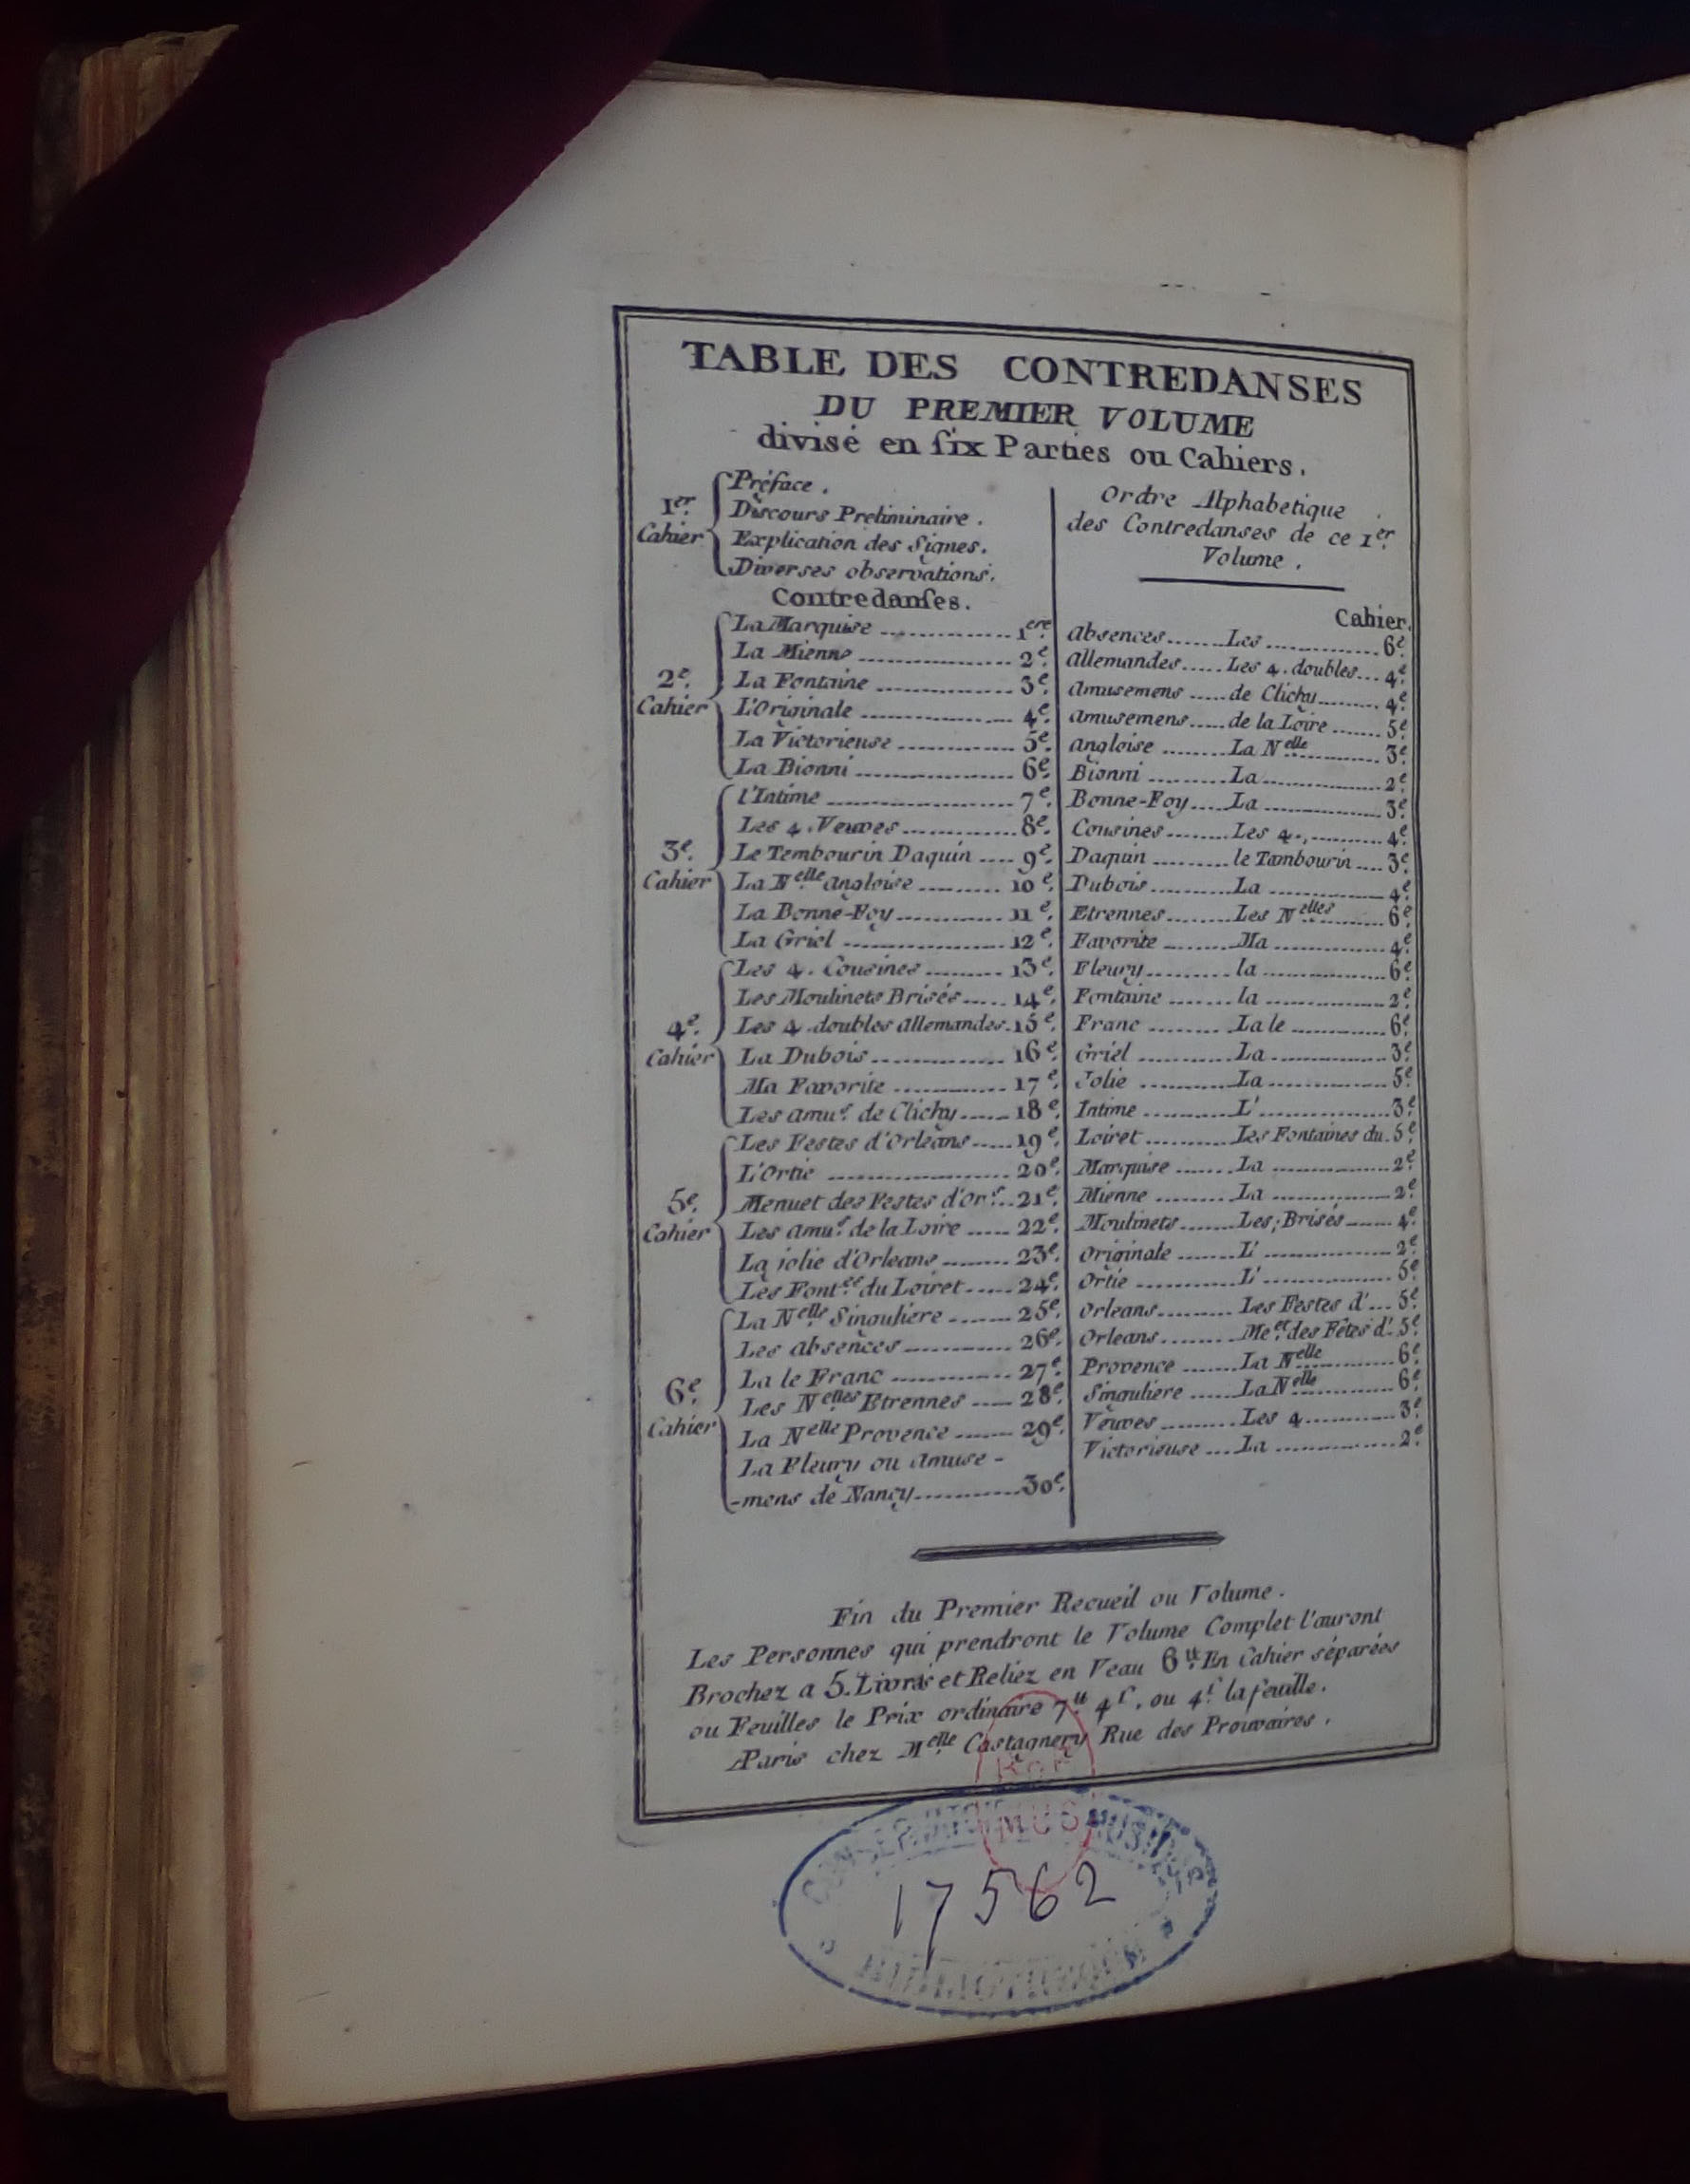 TABLE DES CONTREDANSES
DU PREMIER VOLUME
divisé en ſix Parties ou Cahiers.
1er. Cahier
Préface.
Discours Preliminaire.
Explication des Signes.
Diverses observations.
Contredanſes.
2e. Cahier
La Marquise .... 1ere.
La Mienne .... 2e.
La Fontaine .... 3e.
L'Originale .... 4e.
La Victorieuse .... 5e.
La Bionni .... 6e.
3e. Cahier
l'Intime .... 7e.
Les 4. Veuves .... 8e.
Le Tembourin Daquin .... 9e.
La Nelle angloise .... 10e.
La Bonne-Foy .... 11e.
La Griel .... 12e.
4e. Cahier
Les 4. Cousines .... 13e.
Les Moulinets Brisés .... 14e.
Les 4. doubles allemandes. 15e.
La Dubois .... 16e.
Ma Favorite .... 17e.
Les amus. de Clichy .... 18e.
5e. Cahier
Les Festes d'Orleans .... 19e.
L'Ortie .... 20e.
Menuet des Festes d'Ors. .. 21e.
Les amus. de la Loire .... 22e.
La jolie d'Orleans .... 23e.
Les Fontes. du Loiret .... 24e.
6e. Cahier
La Nelle Singuliere .... 25e.
Les absences .... 26e.
La le Franc .... 27e.
Les Nelles Etrennes .... 28e.
La Nelle Provence .... 29e.
La Fleury ou amuse-
-mens de Nancy .... 30e.
Ordre Alphabetique
des Contredanses de ce 1er.
Volume.
Cahier.
absences .... Les .... 6e.
allemandes .... Les 4. doubles ... 4e.
amusemens .... de Clichy .... 4e.
amusemens .... de la Loire .... 5e.
angloise .... La Nelle .... 3e.
Bionni .... La .... 2e.
Bonne-Foy .... La .... 3e.
Cousines .... Les 4. .... 4e.
Daquin .... le Tambourin .... 3e.
Dubois .... La .... 4e.
Etrennes .... Les Nelles .... 6e.
Favorite .... Ma .... 4e.
Fleury .... la .... 6e.
Fontaine .... la .... 2e.
Franc .... La le .... 6e.
Griel .... La .... 3e.
Jolie .... La .... 5e.
Intime .... L' .... 3e.
Loiret .... Les Fontaines du. 5e.
Marquise .... La .... 2e.
Mienne .... La .... 2e.
Moulinets .... Les; Brisés .... 4e.
Originale .... L' .... 2e.
Ortie .... L' .... 5e.
Orleans .... Les Festes d' ... 5e.
Orleans .... Meet. des Fêtes d'. 5e.
Provence .... La Nelle .... 6e.
Singuliere .... La Nelle .... 6e.
Veuves .... Les 4 .... 3e.
Victorieuse .... La .... 2e.
Fin du Premier Recueil ou Volume.
Les Personnes qui prendront le Volume Complet l'auront
Brochez a 5. Livres et Reliez en Veau 6tt. En Cahier séparées
ou Feuilles le Prix ordinaire 7tt. 4s. ou 4s. la feuille.
A Paris chez Melle Castagnery Rue des Prouvaires.
MUS
17562